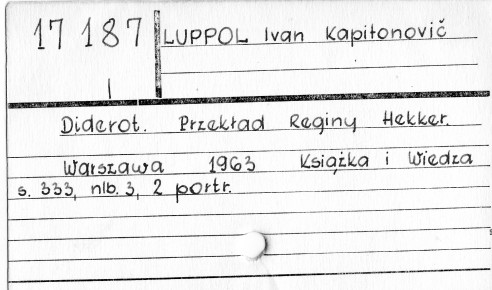 17 187
I
LUPPOL Ivan Kapitonovič
Diderot. Przekład Reginy Hekker.
Warszawa 1963 Książka i Wiedza
s. 333, nlb. 3, 2 portr.